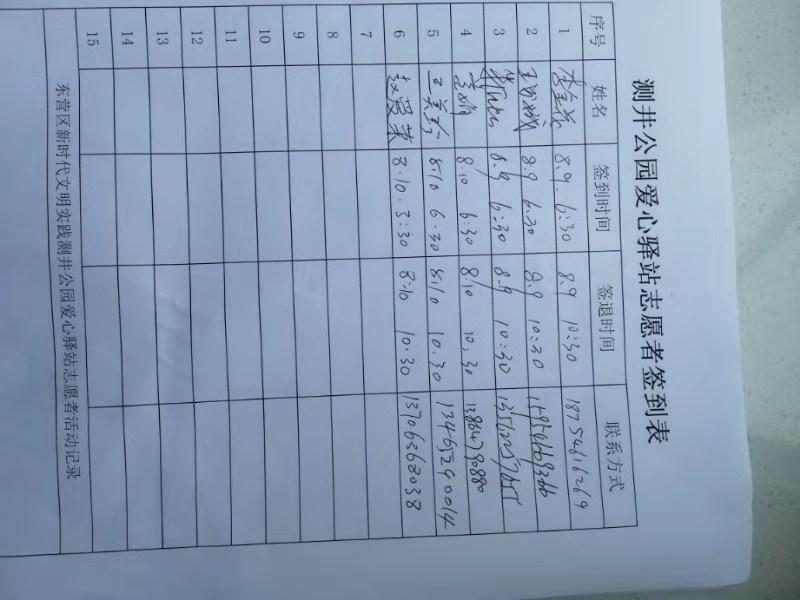 测井公园爱心驿站志愿者签到表
序号 姓名 签到时间 签退时间 联系方式
1 8.9. 6:30 8.9 10:30 18754616269
2 8.9 6.30 8.9 10:30
3 8.9 6:30 8.9 10:30
4 8.10 6:30 8.10 10.30 13864790880
5 王美玲 8.10 6.30 8.10 10.30 13465290014
6 赵爱荣 8.10. 3:30 8.10 10.30 13706368038
7
8
9
10
11
12
13
14
15
东营区新时代文明实践测井公园爱心驿站志愿者活动记录